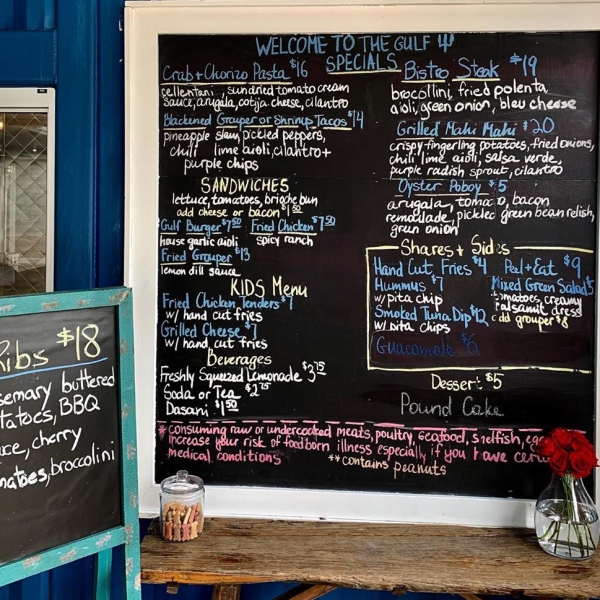 WELCOME TO THE GULF
SPECIALS
Crab + Chorizo Pasta $16
cellentani, sundried tomato cream
sauce, arugula, cotija cheese, cilantro
Blackened Grouper or Shrimp Tacos $14
pineapple slaw, pickled peppers,
chili lime aioli, cilantro +
purple chips
SANDWICHES
lettuce, tomatoes, brioche bun
add cheese or bacon $1.50
Gulf Burger $7.50 Fried Chicken $7.50
house garlic aioli spicy ranch
Fried Grouper $13
lemon dill sauce
KIDS Menu
Fried Chicken Tenders $7
w/ hand cut fries
Grilled Cheese $7
w/ hand cut fries
Beverages
Freshly Squeezed Lemonade $3.75
Soda or Tea $2.75
Dasani $1.50
Bistro Steak $19
brocollini, fried polenta,
aioli, green onion, bleu cheese
Grilled Mahi Mahi $20
crispy fingerling potatoes, fried onions,
chili lime aioli, salsa verde,
purple radish sprout, cilantro
Oyster Poboy $5
arugala, tomato, bacon
remoulade, pickled green bean relish,
green onion
Shares + Sides
Hand Cut Fries $4 Peel + Eat $9
Hummus $7 Mixed Green Salad $5
w/ pita chip tomatoes, creamy
balsamic dress
Smoked Tuna Dip $12 add grouper $8
w/ pita chips
Guacamole $6
Dessert $5
Pound Cake
*consuming raw or undercooked meats, poultry, seafood, shelfish,
increase your risk of foodborn illness especially if you have
medical conditions
**contains peanuts
Ribs $18
buttered
BBQ
cherry
broccolini